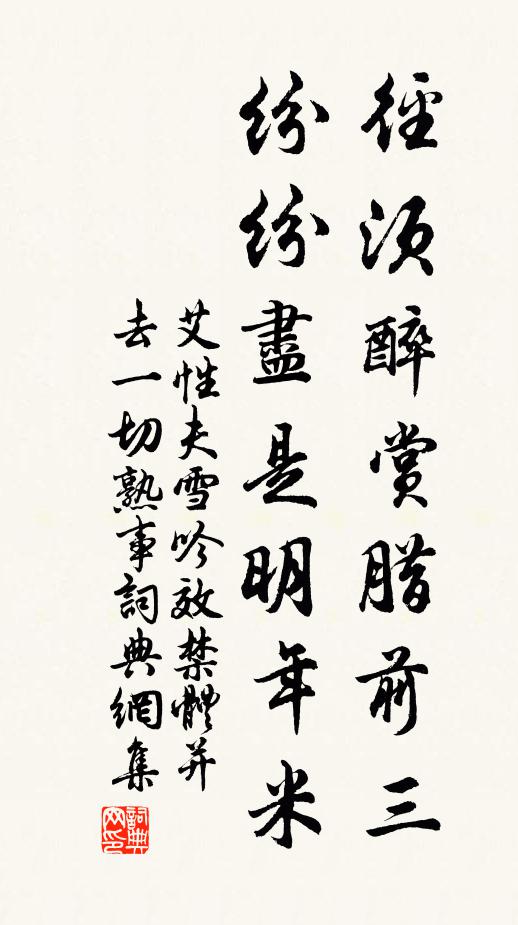 徑須醉賞腊前三
紛紛盡是明年米
艾性夫雪吟效禁體并
去一切熟事詞典網集
詞典
网印